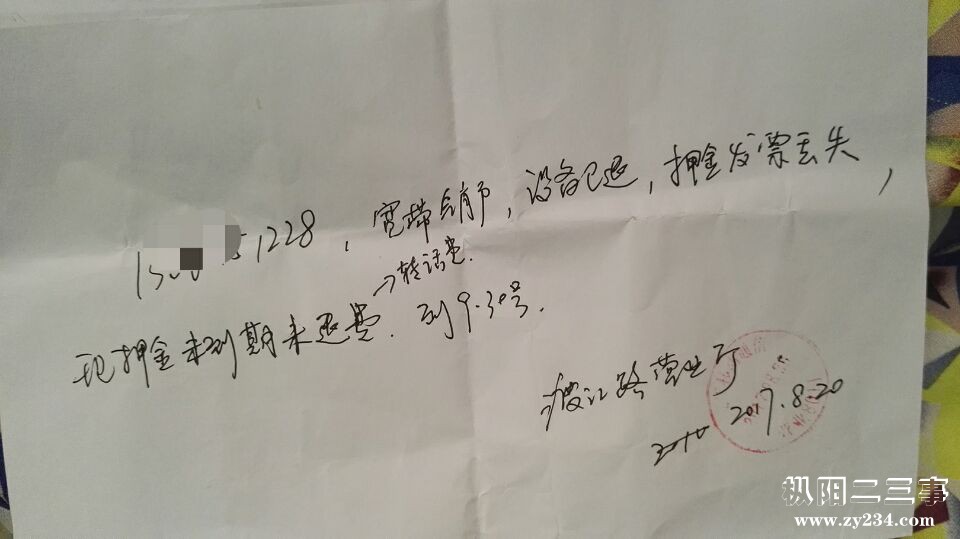 1228，宽带销户，设备已退，押金发票丢失，
→转话费.
现押金未到期未退费. 到9.30号.
渡江路营业厅
2017.8.20
枞阳二三事
www.zy234.com